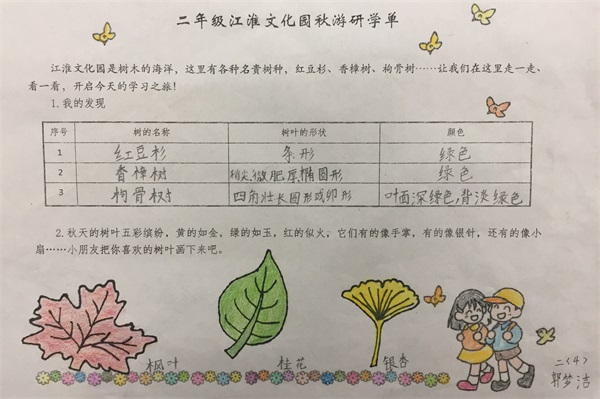 二年级江淮文化园秋游研学单
江淮文化园是树木的海洋，这里有各种名贵树种，红豆杉、香樟树、枸骨树……让我们在这里走一走、
看一看，开启今天的学习之旅！
1.我的发现
序号 树的名称 树叶的形状 颜色
1 红豆杉 条形 绿色
2 香樟树 稍尖,微肥厚椭圆形 绿色
3 枸骨树 四角壮长圆形或卵形 叶面深绿色,背淡绿色
2.秋天的树叶五彩缤纷，黄的如金，绿的如玉，红的似火，它们有的像手掌，有的像银针，还有的像小
扇……小朋友把你喜欢的树叶画下来吧。
枫叶 桂花 银杏
二(4)
郭梦洁